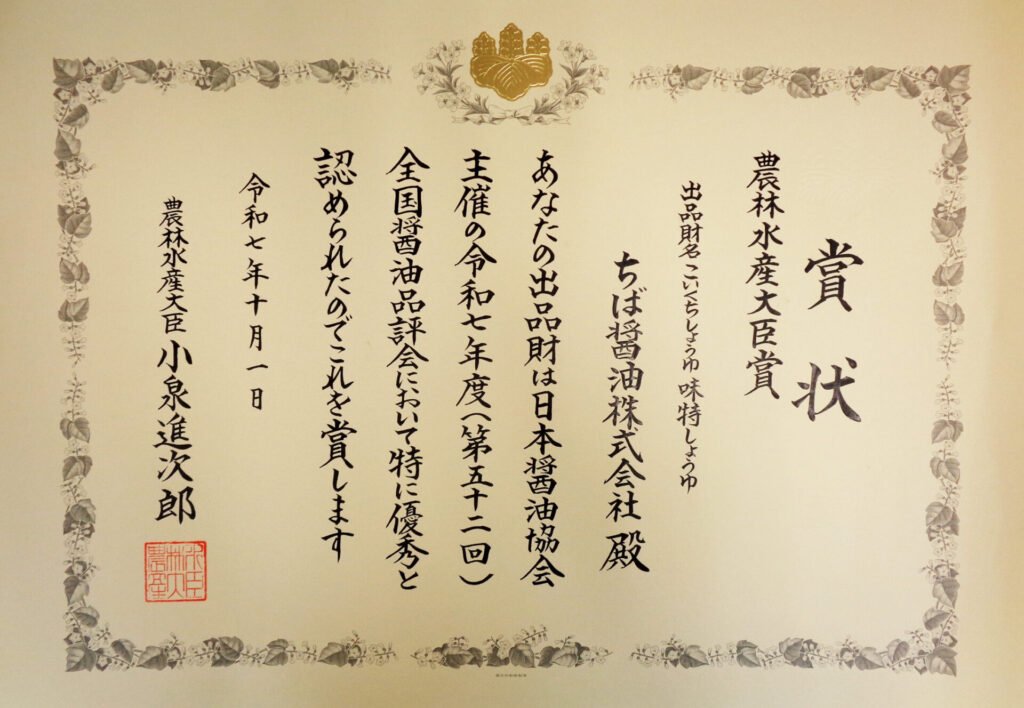 賞状
農林水産大臣賞
出品財名 こいくちしょうゆ 味特しょうゆ
ちば醤油株式会社 殿
あなたの出品財は日本醤油協会
主催の令和七年度(第五十二回)
全国醤油品評会において特に優秀と
認められたのでこれを賞します
令和七年十月一日
農林水産大臣 小泉進次郎